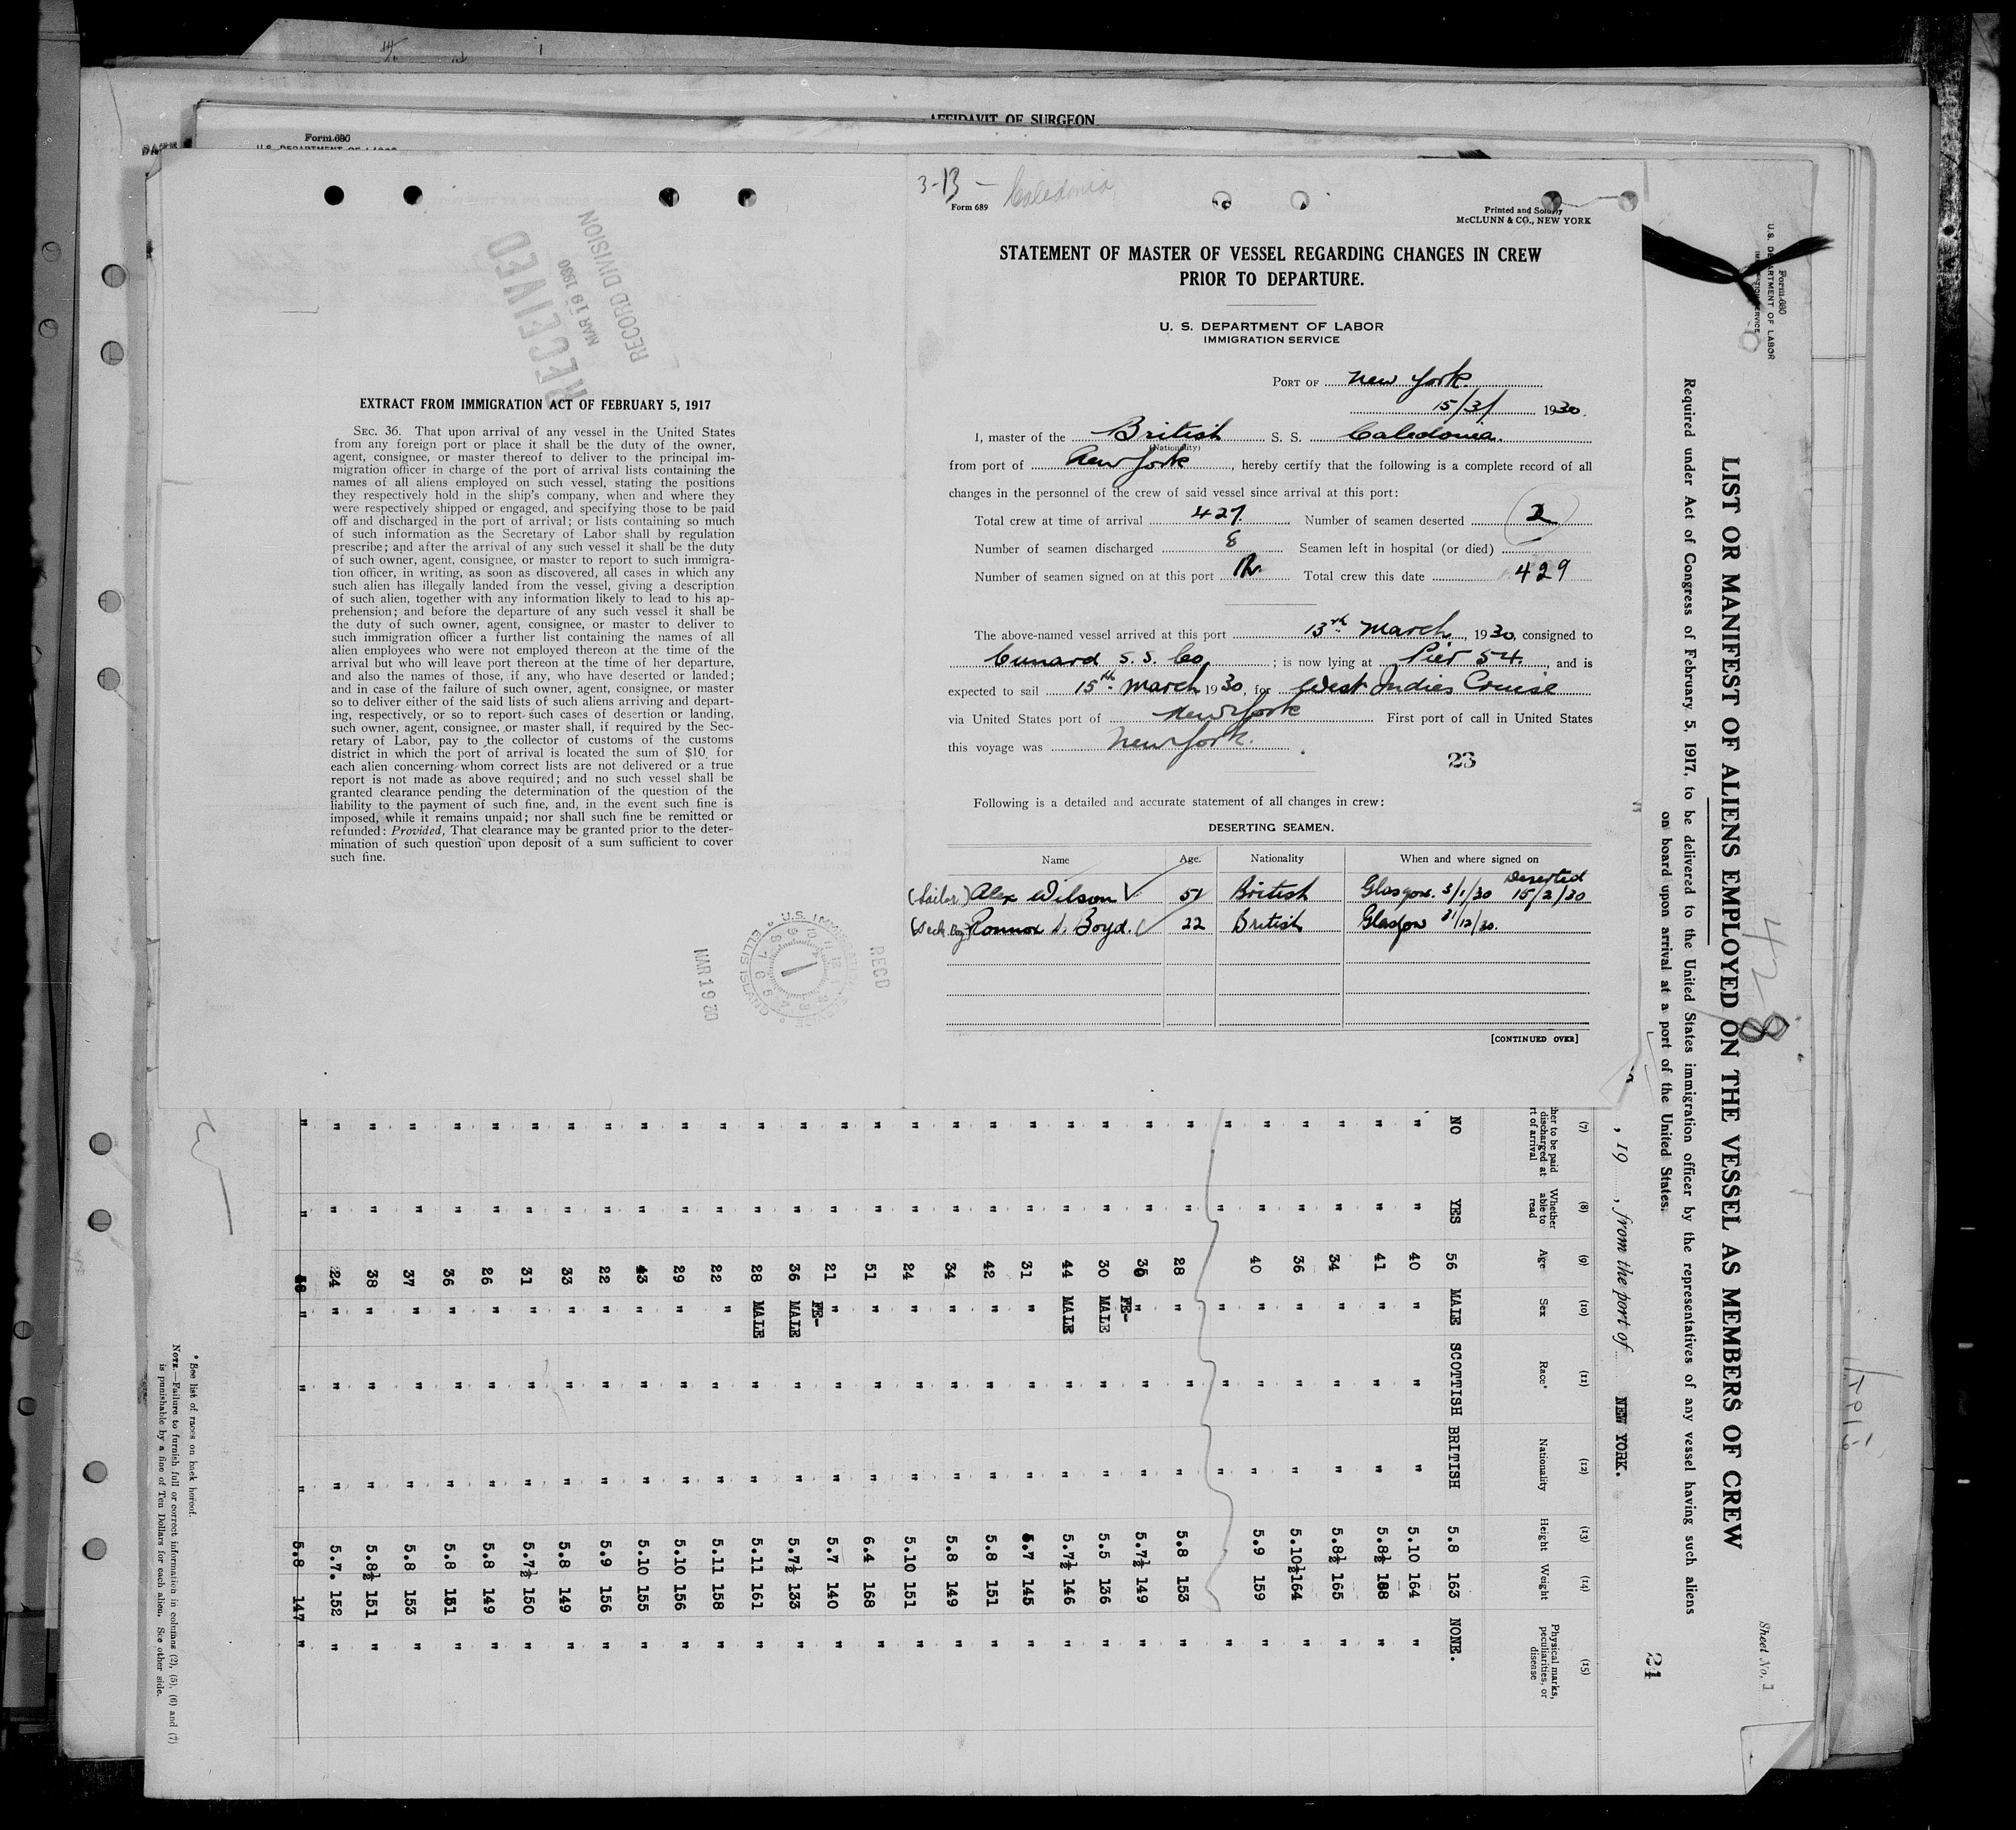 AFFIDAVIT OF SURGEON
Form 680
U. S. DEPARTMENT OF LABOR
RECEIVED
MAR 19 1930
RECORD DIVISION
EXTRACT FROM IMMIGRATION ACT OF FEBRUARY 5, 1917
SEC. 36. That upon arrival of any vessel in the United States
from any foreign port or place it shall be the duty of the owner,
agent, consignee, or master thereof to deliver to the principal im-
migration officer in charge of the port of arrival lists containing the
names of all aliens employed on such vessel, stating the positions
they respectively hold in the ship's company, when and where they
were respectively shipped or engaged, and specifying those to be paid
off and discharged in the port of arrival; or lists containing so much
of such information as the Secretary of Labor shall by regulation
prescribe; and after the arrival of any such vessel it shall be the duty
of such owner, agent, consignee, or master to report to such immigra-
tion officer, in writing, as soon as discovered, all cases in which any
such alien has illegally landed from the vessel, giving a description
of such alien, together with any information likely to lead to his ap-
prehension; and before the departure of any such vessel it shall be
the duty of such owner, agent, consignee, or master to deliver to
such immigration officer a further list containing the names of all
alien employees who were not employed thereon at the time of the
arrival but who will leave port thereon at the time of her departure,
and also the names of those, if any, who have deserted or landed;
and in case of the failure of such owner, agent, consignee, or master
so to deliver either of the said lists of such aliens arriving and depart-
ing, respectively, or so to report such cases of desertion or landing,
such owner, agent, consignee, or master shall, if required by the Sec-
retary of Labor, pay to the collector of customs of the customs
district in which the port of arrival is located the sum of $10 for
each alien concerning whom correct lists are not delivered or a true
report is not made as above required; and no such vessel shall be
granted clearance pending the determination of the question of the
liability to the payment of such fine, and, in the event such fine is
imposed, while it remains unpaid; nor shall such fine be remitted or
refunded: Provided, That clearance may be granted prior to the deter-
mination of such question upon deposit of a sum sufficient to cover
such fine.
MAR 19 30
U.S. IMMIGRATION
ELLIS ISLAND
RECD
3-13 - Caledonia
Form 689
Printed and Sold by
McCLUNN & CO., NEW YORK
STATEMENT OF MASTER OF VESSEL REGARDING CHANGES IN CREW
PRIOR TO DEPARTURE.
U. S. DEPARTMENT OF LABOR
IMMIGRATION SERVICE
PORT OF New York
15/3/ 1930.
I, master of the British S. S. Caledonia.
(Nationality)
from port of New York, hereby certify that the following is a complete record of all
changes in the personnel of the crew of said vessel since arrival at this port:
Total crew at time of arrival 427. Number of seamen deserted 2
Number of seamen discharged 8 Seamen left in hospital (or died)
Number of seamen signed on at this port 12. Total crew this date 429
The above-named vessel arrived at this port 13th March, 1930, consigned to
Cunard S. S. Co; is now lying at Pier 54., and is
expected to sail 15th March 1930, for West Indies Cruise
via United States port of New York First port of call in United States
this voyage was New York.
23
Following is a detailed and accurate statement of all changes in crew:
DESERTING SEAMEN.
Name Age. Nationality When and where signed on
Deserted
(Sailor) Alex Wilson 51 British Glasgow. 3/1/30 15/2/30
(Deck Boy) Boyd. 22 British Glasgow 31/12/30.
[CONTINUED OVER]
Form 680
U.S. DEPARTMENT OF LABOR
IMMIGRATION SERVICE
Sheet No. 1
428
LIST OR MANIFEST OF ALIENS EMPLOYED ON THE VESSEL AS MEMBERS OF CREW
Required under Act of Congress of February 5, 1917, to be delivered to the United States immigration officer by the representatives of any vessel having such aliens
on board upon arrival at a port of the United States.
24
, 19 , from the port of NEW YORK.
(7) (8) (9) (10) (11) (12) (13) (14) (15)
ther to be paid discharged at rt of arrival Whether able to read Age Sex Race* Nationality Height Weight Physical marks, peculiarities, or disease
NO YES 56 MALE SCOTTISH BRITISH 5.8 163 NONE.
" " 40 " " " 5.10 164 "
" " 41 " " " 5.8½ 188 "
" " 34 " " " 5.8½ 165 "
" " 36 " " " 5.10½ 164 "
" " 40 " " " 5.9 159 "
" " " " " "
" " 28 " " " 5.8 153 "
" " 35 " " " 5.7½ 149 "
" " 30 FE-MALE " " 5.5 136 "
" " 44 MALE " " 5.7½ 146 "
" " 31 " " " 5.7 145 "
" " 42 " " " 5.8 151 "
" " 34 " " " 5.8 149 "
" " 24 " " " 5.10 151 "
" " 51 " " " 6.4 168 "
" " 21 " " " 5.7 140 "
" " 36 FE-MALE " " 5.7½ 133 "
" " 28 MALE " " 5.11 161 "
" " 22 " " " 5.11 158 "
" " 29 " " " 5.10 156 "
" " 43 " " " 5.10 155 "
" " 22 " " " 5.9 156 "
" " 33 " " " 5.8 149 "
" " 31 " " " 5.7½ 150 "
" " 26 " " " 5.8 149 "
" " 36 " " " 5.8 151 "
" " 37 " " " 5.8 153 "
" " 38 " " " 5.8½ 151 "
" " 24 " " " 5.7. 152 "
" " " " " 5.8 147 "
* See list of races on back hereof.
NOTE.—Failure to furnish full or correct information in columns (2), (5), (6) and (7)
is punishable by a fine of Ten Dollars for each alien. See other side.